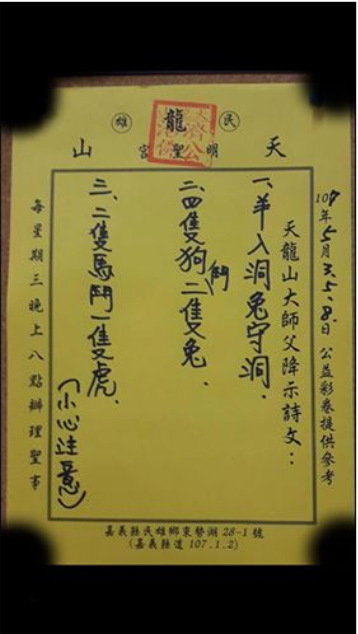 民雄
天龍山
明聖宮
107年5月3.5.8.日 公益彩卷提供參考
天龍山大師父降示詩文：
一、羊入洞兔守洞.
二、四隻狗鬥二隻兔.
三、二隻馬鬥一隻虎.
(小心注意)
每星期三晚上八點辦理聖事
嘉義縣民雄鄉東勢湖 28-1 號
(嘉義縣道 107.1.2)